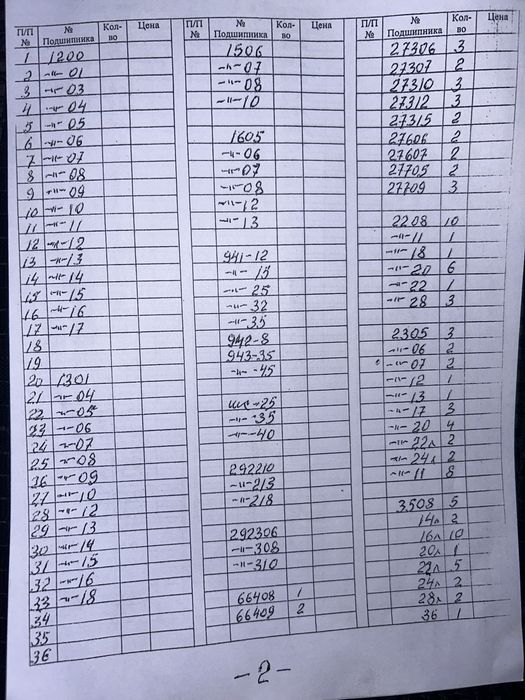 П/П № № Подшипника Кол-во Цена
1 1200
2 -"- 01
3 -"- 03
4 -"- 04
5 -"- 05
6 -"- 06
7 -"- 07
8 -"- 08
9 -"- 09
10 -"- 10
11 -"- 11
12 -"- 12
13 -"- 13
14 -"- 14
15 -"- 15
16 -"- 16
17 -"- 17
18
19
20 1301
21 -"- 04
22 -"- 05
23 -"- 06
24 -"- 07
25 -"- 08
26 -"- 09
27 -"- 10
28 -"- 12
29 -"- 13
30 -"- 14
31 -"- 15
32 -"- 16
33 -"- 18
34
35
36
П/П № № Подшипника Кол-во Цена
1506
-"- 07
-"- 08
-"- 10
1605
-"- 06
-"- 07
-"- 08
-"- 12
-"- 13
941-12
-"- 15
-"- 25
-"- 32
-"- 35
942-8
943-35
-"- 45
шс-25
-"- 35
-"- 40
292210
-"- 213
-"- 218
292306
-"- 308
-"- 310
66408 1
66409 2
П/П № № Подшипника Кол-во Цена
27306 3
27307 2
27310 3
27312 3
27315 2
27606 2
27607 2
27705 2
27709 3
2208 10
-"- 11 1
-"- 18 1
-"- 20 6
-"- 22 1
-"- 28 3
2305 3
-"- 06 2
-"- 07 2
-"- 12 1
-"- 13 1
-"- 17 3
-"- 20 4
-"- 22л 2
-"- 24л 2
-"- 11 8
3508 5
14л 2
16л 10
20л 1
22л 5
24л 2
28л 2
36 1
-2-